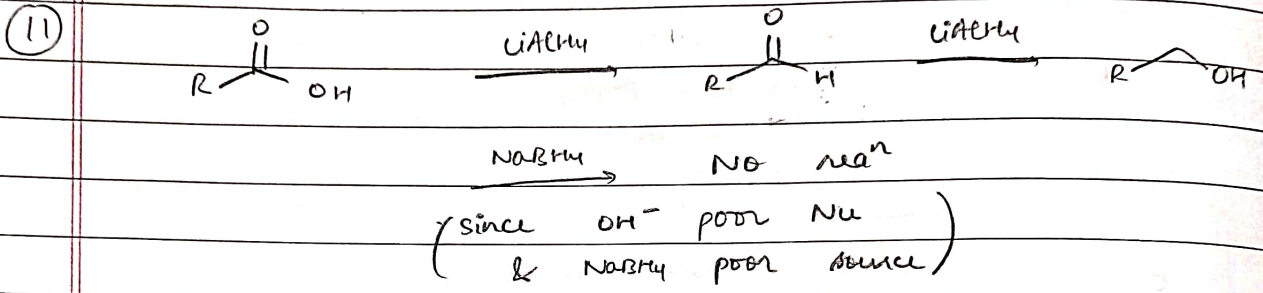 11
O
R OH
LiAlH4
O
R H
LiAlH4
R OH
NaBH4
NO reaⁿ
(since OH⁻ poor Nu
& NaBH4 poor source)